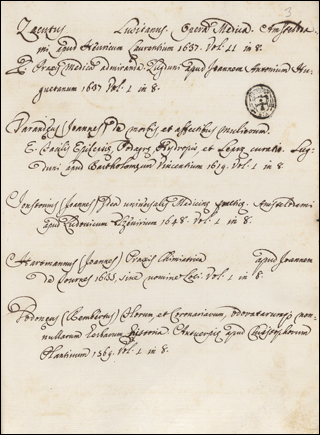 3
Zacutus Lusitanus. Opera Medica. Amstelda-
mi apud Henricum Laurentium 1637. Vol. 11 in 8.
E. Praxis Medica admiranda. Lugduni apud Joannem Antonium Hu-
guetanum 1637 Vol. 1 in 8.
Varandeus (Joannes) De morbis et affectibus mulierum.
E. Ejusdem Podagre Hydropis et Lepre curatio. Lug-
duni apud Bartholomeum Vincentium 1619. Vol. 1 in 8.
Jonstonius (Joannes) Idea universalis Medicine Amstelodami
apud Ludovicum Elzevirium 1648. Vol. 1 in 8.
Hartmannus (Joannes) Praxis Chimiatrica apud Joannem
de Tournes 1635, sine nomine Loci. Vol. 1 in 8.
Dodoneus (Rembertus) Florum, et Coronariarum, odoratarumq non-
nullarum Historia. Antuerpie apud Christophorum
Plantinum 1569. Vol. 1 in 8.